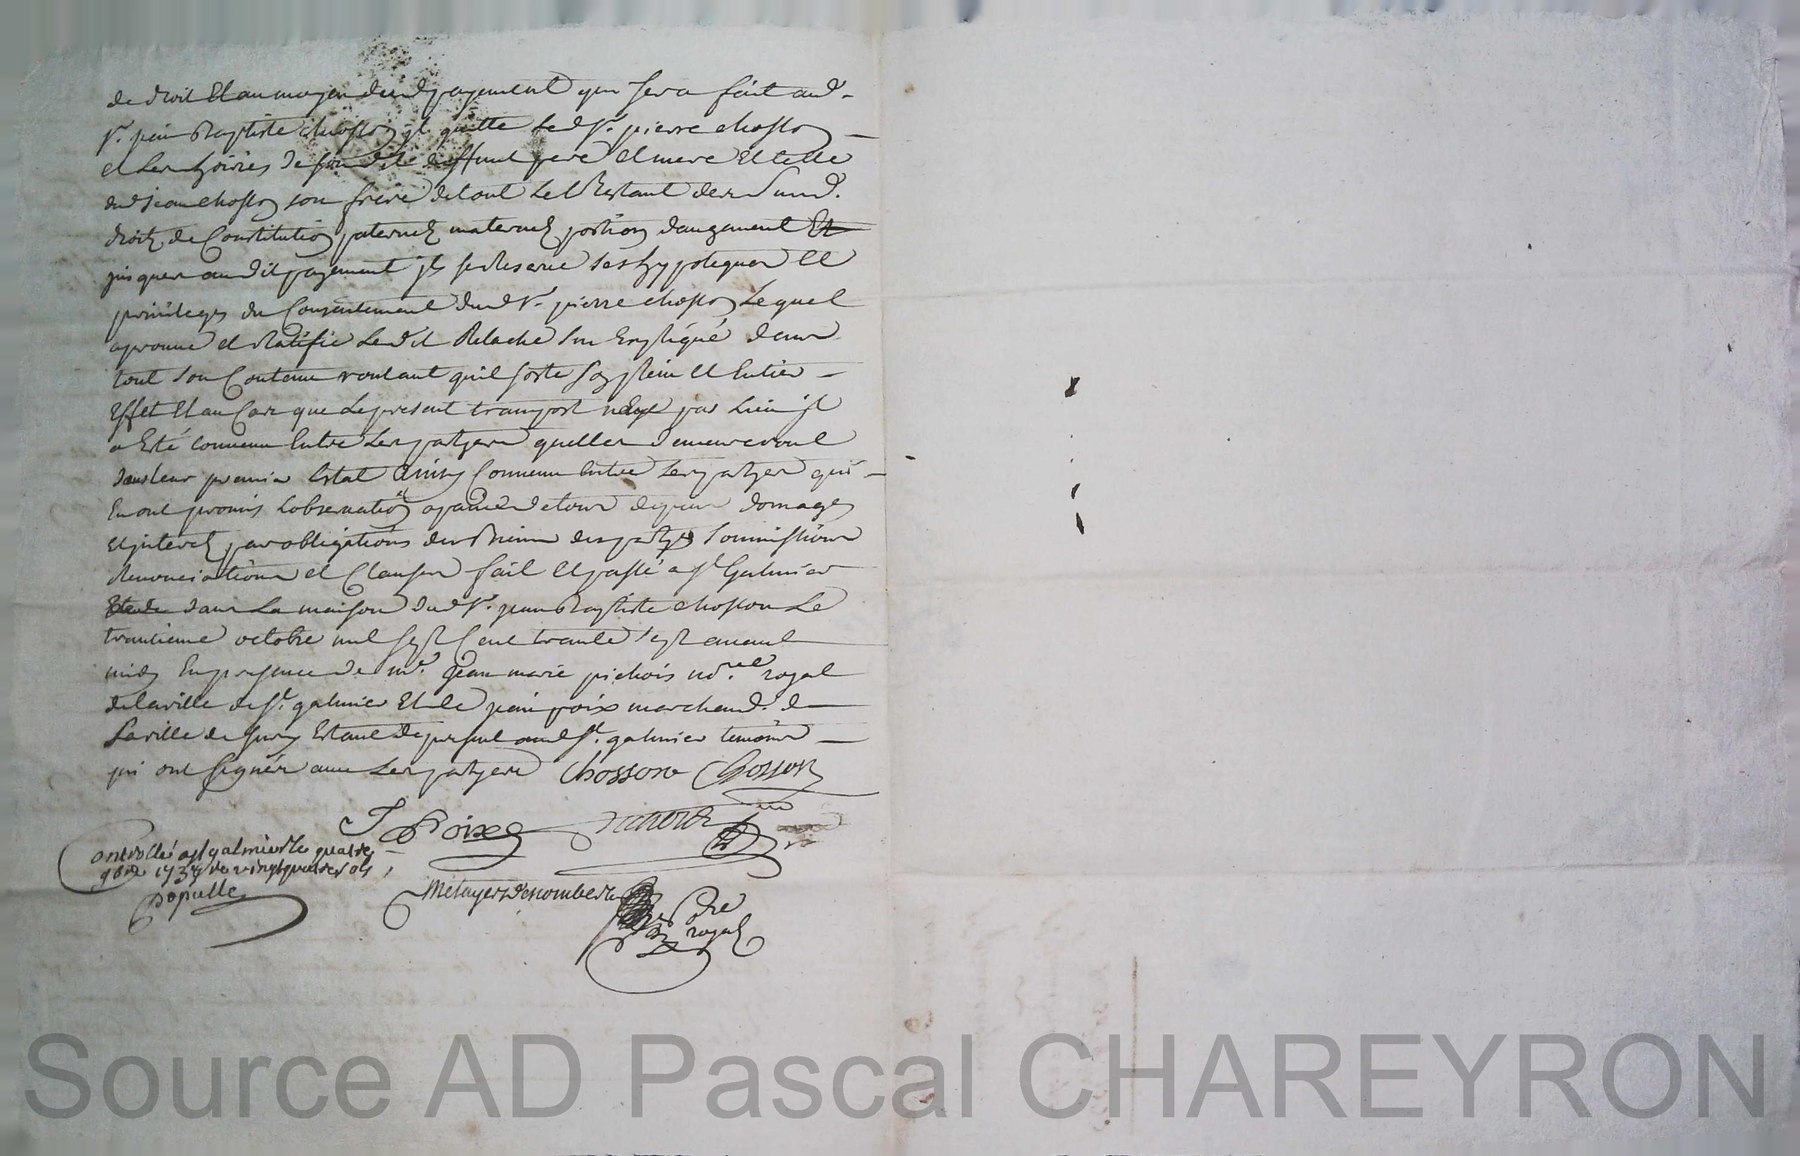 de droit Et au moyen dud payement qui sera fait aud
Sr. jean Baptiste chosson jl quitte led Sr. pierre chosson
et les hoiries de son dit deffunt pere et mere Et celle
dud jean chosson son frere de tout le Restant des Susd.
droits de Constitution paternels maternels portion daugament
jusques audit payement jl se Reserve ses hypoteques Et
privileges du Consentement dud Sr. pierre chosson Lequel
aprouve et Ratifie Ledit Relache Sus Expliqué dans
tout son Contenu voulant quil sorte son plein Et Entier
Effet Et au Cas que Le present transport pas Lieu jl
a Esté convenu Entre Les partyes quelles demeureront
dans leur premier Estat Ainsy Convenu Entre Les partyes qui
En ont promis Lobservation a paine de tous depens domages
Et jnterets par obligations de Biens des partyes Soumissions
Renonciations et Clauses fait Et passé a St Galmier
dans La maison dud Sr. jean Baptiste chosson Le
trantieme octobre mil sept Cent trante sept avant
midy En presence de me. Jean marie pichois nore. royal
de la ville de St. galmier Et de jean poix marchand. de
La ville de Sury Estant de present aud St. galmier temoins
qui ont signés avec Les partyes Chosson Chosson
J Poix
Controllé a St galmier le quatre
9bre 1737 re vingt quatre sols
populle
Metayer Descombes
royal
Source AD Pascal CHAREYRON